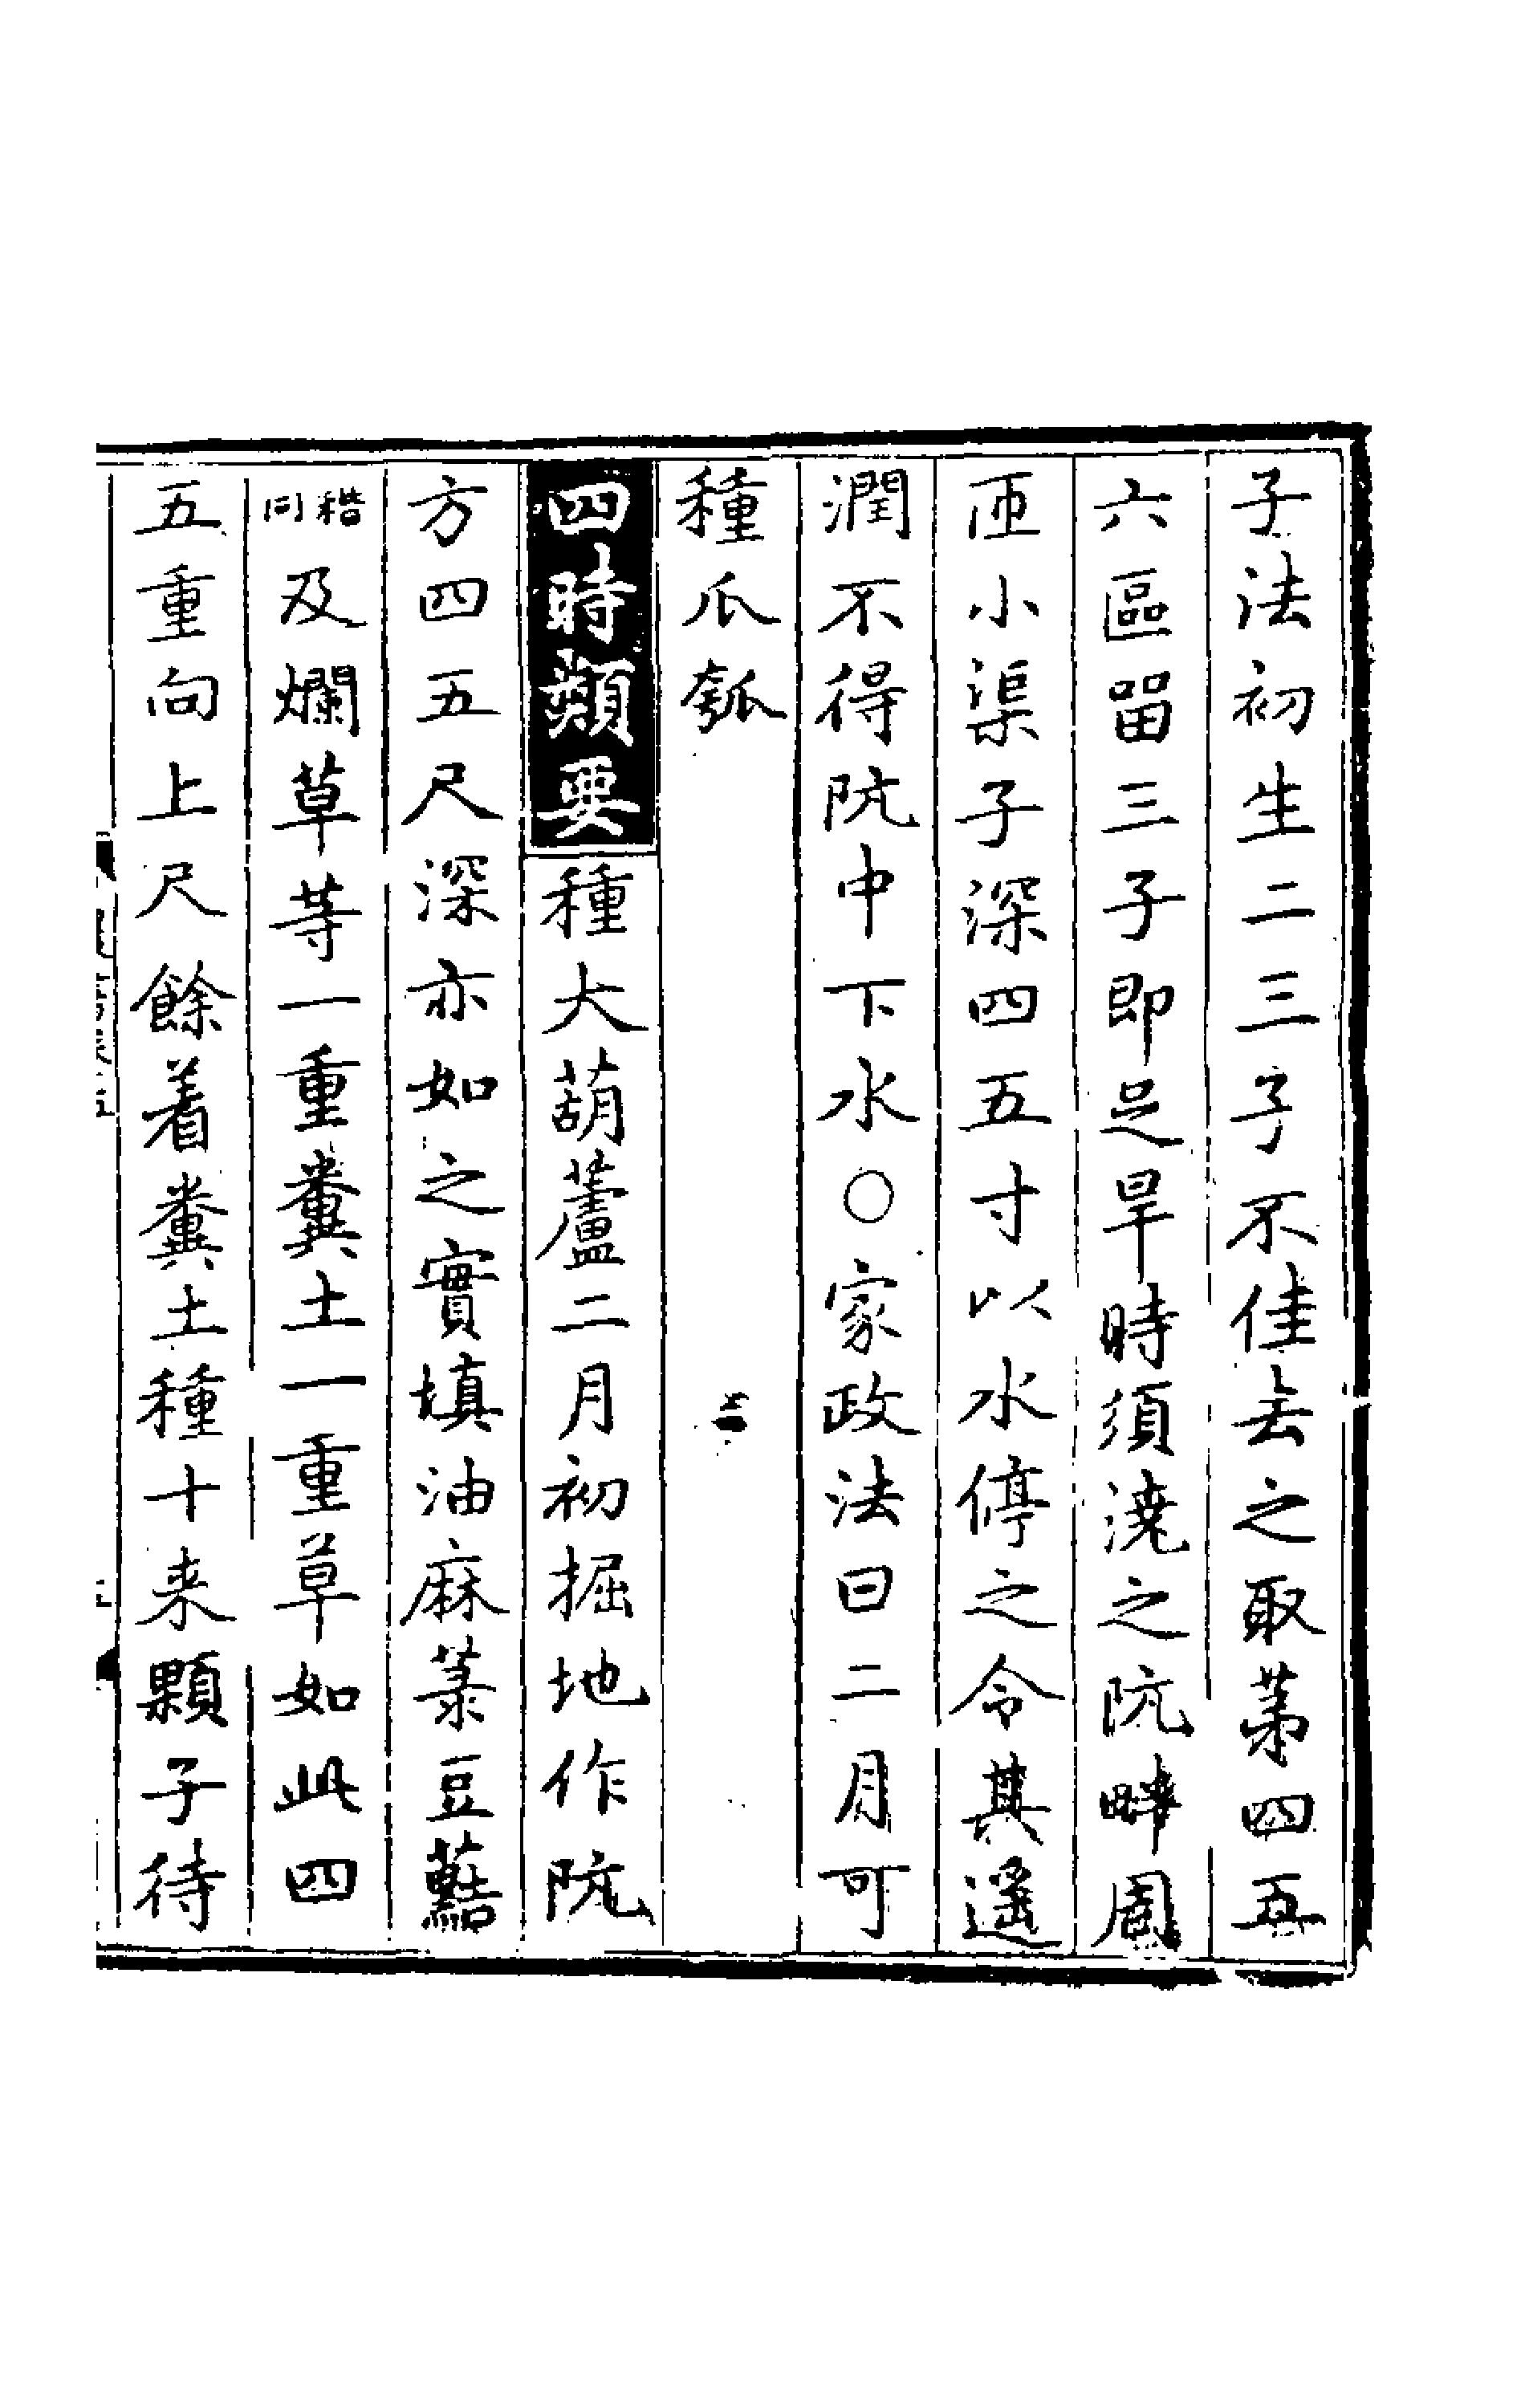 子法初生二三子不佳去之取第四五
六區留三子即足旱時須澆之阬畔周
匝小渠子深四五寸以水停之令其遥
潤不得阬中下水○家政法曰二月可
種瓜瓠
四時類要種大葫蘆二月初掘地作阬
方四五尺深亦如之實填油麻菉豆䕸
稭同及爛草等一重糞土一重草如此四
五重向上尺餘着糞土種十来顆子待